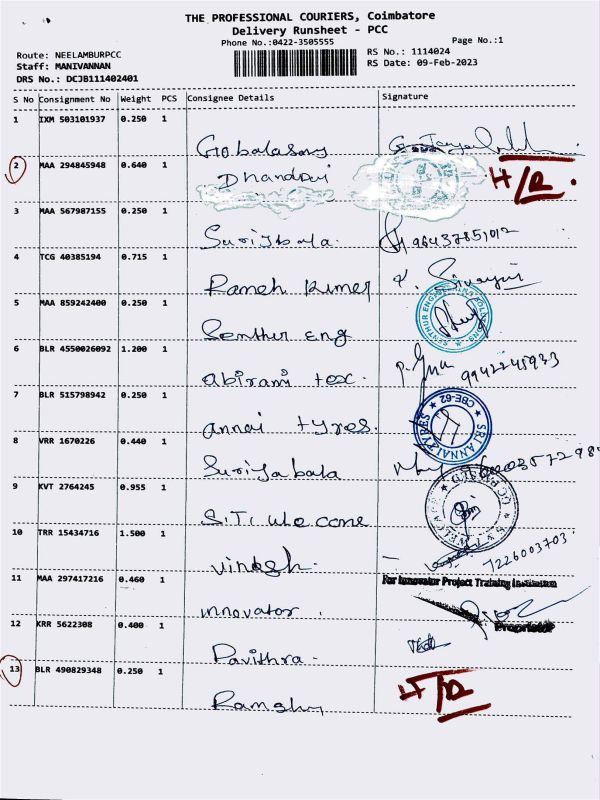 THE PROFESSIONAL COURIERS, Coimbatore
Delivery Runsheet - PCC
Phone No.:0422-3505555
Page No.:1
Route: NEELAMBURPCC
RS No.: 1114024
Staff: MANIVANNAN
RS Date: 09-Feb-2023
DRS No.: DCJB111402401
S No Consignment No Weight PCS Consignee Details Signature
1 IXM 503101937 0.250 1
Gobalasamy
2 MAA 294845948 0.640 1
Dhandapi H/R.
3 MAA 567987155 0.250 1
Suriybala. 96437851012
4 TCG 40385194 0.715 1
Rameh Kumer
5 MAA 859242400 0.250 1
Senthur Eng
6 BLR 4550026092 1.200 1
abirami tex. 9942245933
7 BLR 515798942 0.250 1
annai tyres.
SRI ANNAI TYRES
CBE-62
8 VRR 1670226 0.440 1
Suriyabala
9 KVT 2764245 0.955 1
S.T. welcome
10 TRR 15434716 1.500 1
Vinoth. 7226003703.
11 MAA 297417216 0.460 1
For Innovator Project Training Institution
innovator.
Proprietor
12 KRR 5622308 0.400 1
Pavithra.
13 BLR 490829348 0.250 1
H/R